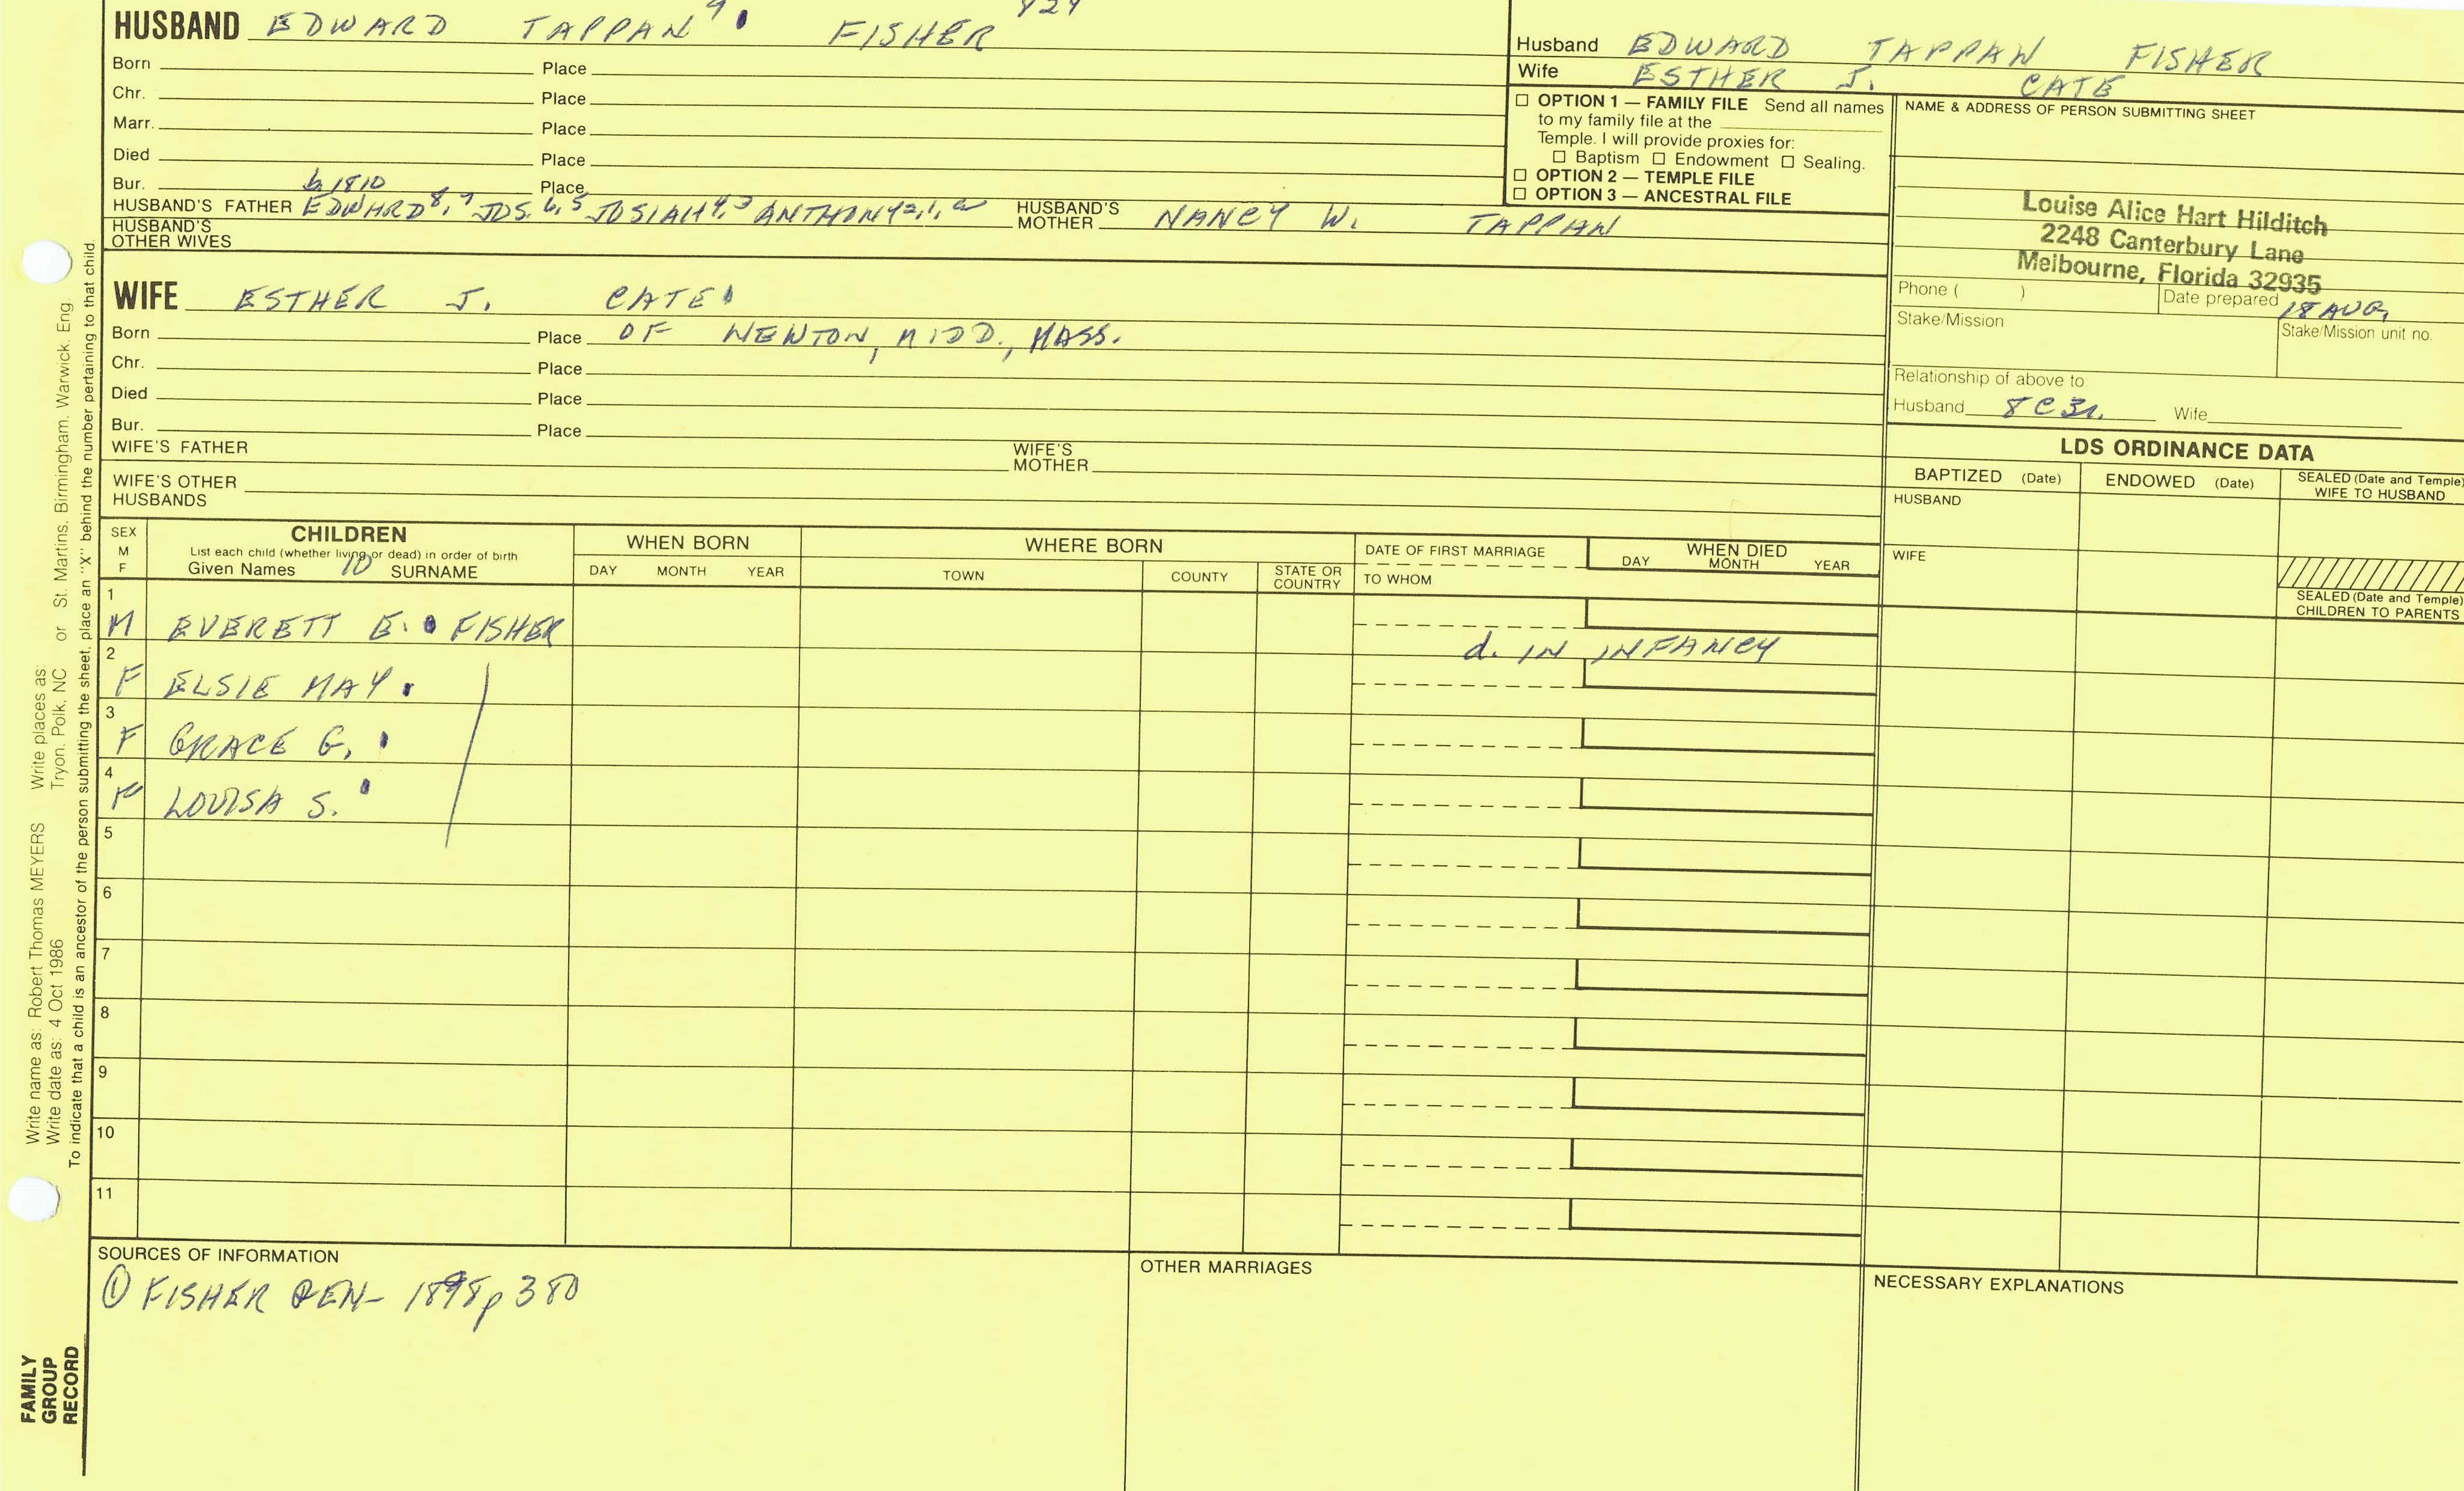 HUSBAND EDWARD TAPPAN 9 FISHER 424
Born Place
Chr. Place
Marr. Place
Died Place
Bur. Place
b 1810
HUSBAND'S FATHER EDWARD 8,7 JOS. 6,5 JOSIAH 4,3 ANTHONY 2,1, HUSBAND'S MOTHER NANCY W. TAPPAN
HUSBAND'S OTHER WIVES
WIFE ESTHER J. CATE
Born Place OF NEWTON, MIDD., MASS.
Chr. Place
Died Place
Bur. Place
WIFE'S FATHER WIFE'S MOTHER
WIFE'S OTHER HUSBANDS
Husband EDWARD TAPPAN FISHER
Wife ESTHER J. CATE
☐ OPTION 1 — FAMILY FILE Send all names
to my family file at the
Temple. I will provide proxies for:
☐ Baptism ☐ Endowment ☐ Sealing.
☐ OPTION 2 — TEMPLE FILE
☐ OPTION 3 — ANCESTRAL FILE
NAME & ADDRESS OF PERSON SUBMITTING SHEET
Louise Alice Hart Hilditch
2248 Canterbury Lane
Melbourne, Florida 32935
Phone ( ) Date prepared 18 AUG
Stake/Mission Stake/Mission unit no.
Relationship of above to:
Husband 8C3r. Wife
LDS ORDINANCE DATA
BAPTIZED (Date) ENDOWED (Date) SEALED (Date and Temple) WIFE TO HUSBAND
HUSBAND
WIFE
SEALED (Date and Temple)
CHILDREN TO PARENTS
SEX M F
CHILDREN
List each child (whether living or dead) in order of birth
Given Names 10 SURNAME
WHEN BORN
DAY MONTH YEAR
WHERE BORN
TOWN COUNTY STATE OR COUNTRY
DATE OF FIRST MARRIAGE
TO WHOM
WHEN DIED
DAY MONTH YEAR
1 M EVERETT E. FISHER
2 F ELSIE MAY d. IN INFANCY
3 F GRACE G.
4 F LOUISA S.
5
6
7
8
9
10
11
SOURCES OF INFORMATION
① FISHER GEN- 1898 p 380
OTHER MARRIAGES
NECESSARY EXPLANATIONS
Write name as: Robert Thomas MEYERS Write places as:
Write date as: 4 Oct 1986 Tryon, Polk, NC or St. Martins, Birmingham, Warwick, Eng.
To indicate that a child is an ancestor of the person submitting the sheet, place an "X" behind the number pertaining to that child.
FAMILY
GROUP
RECORD